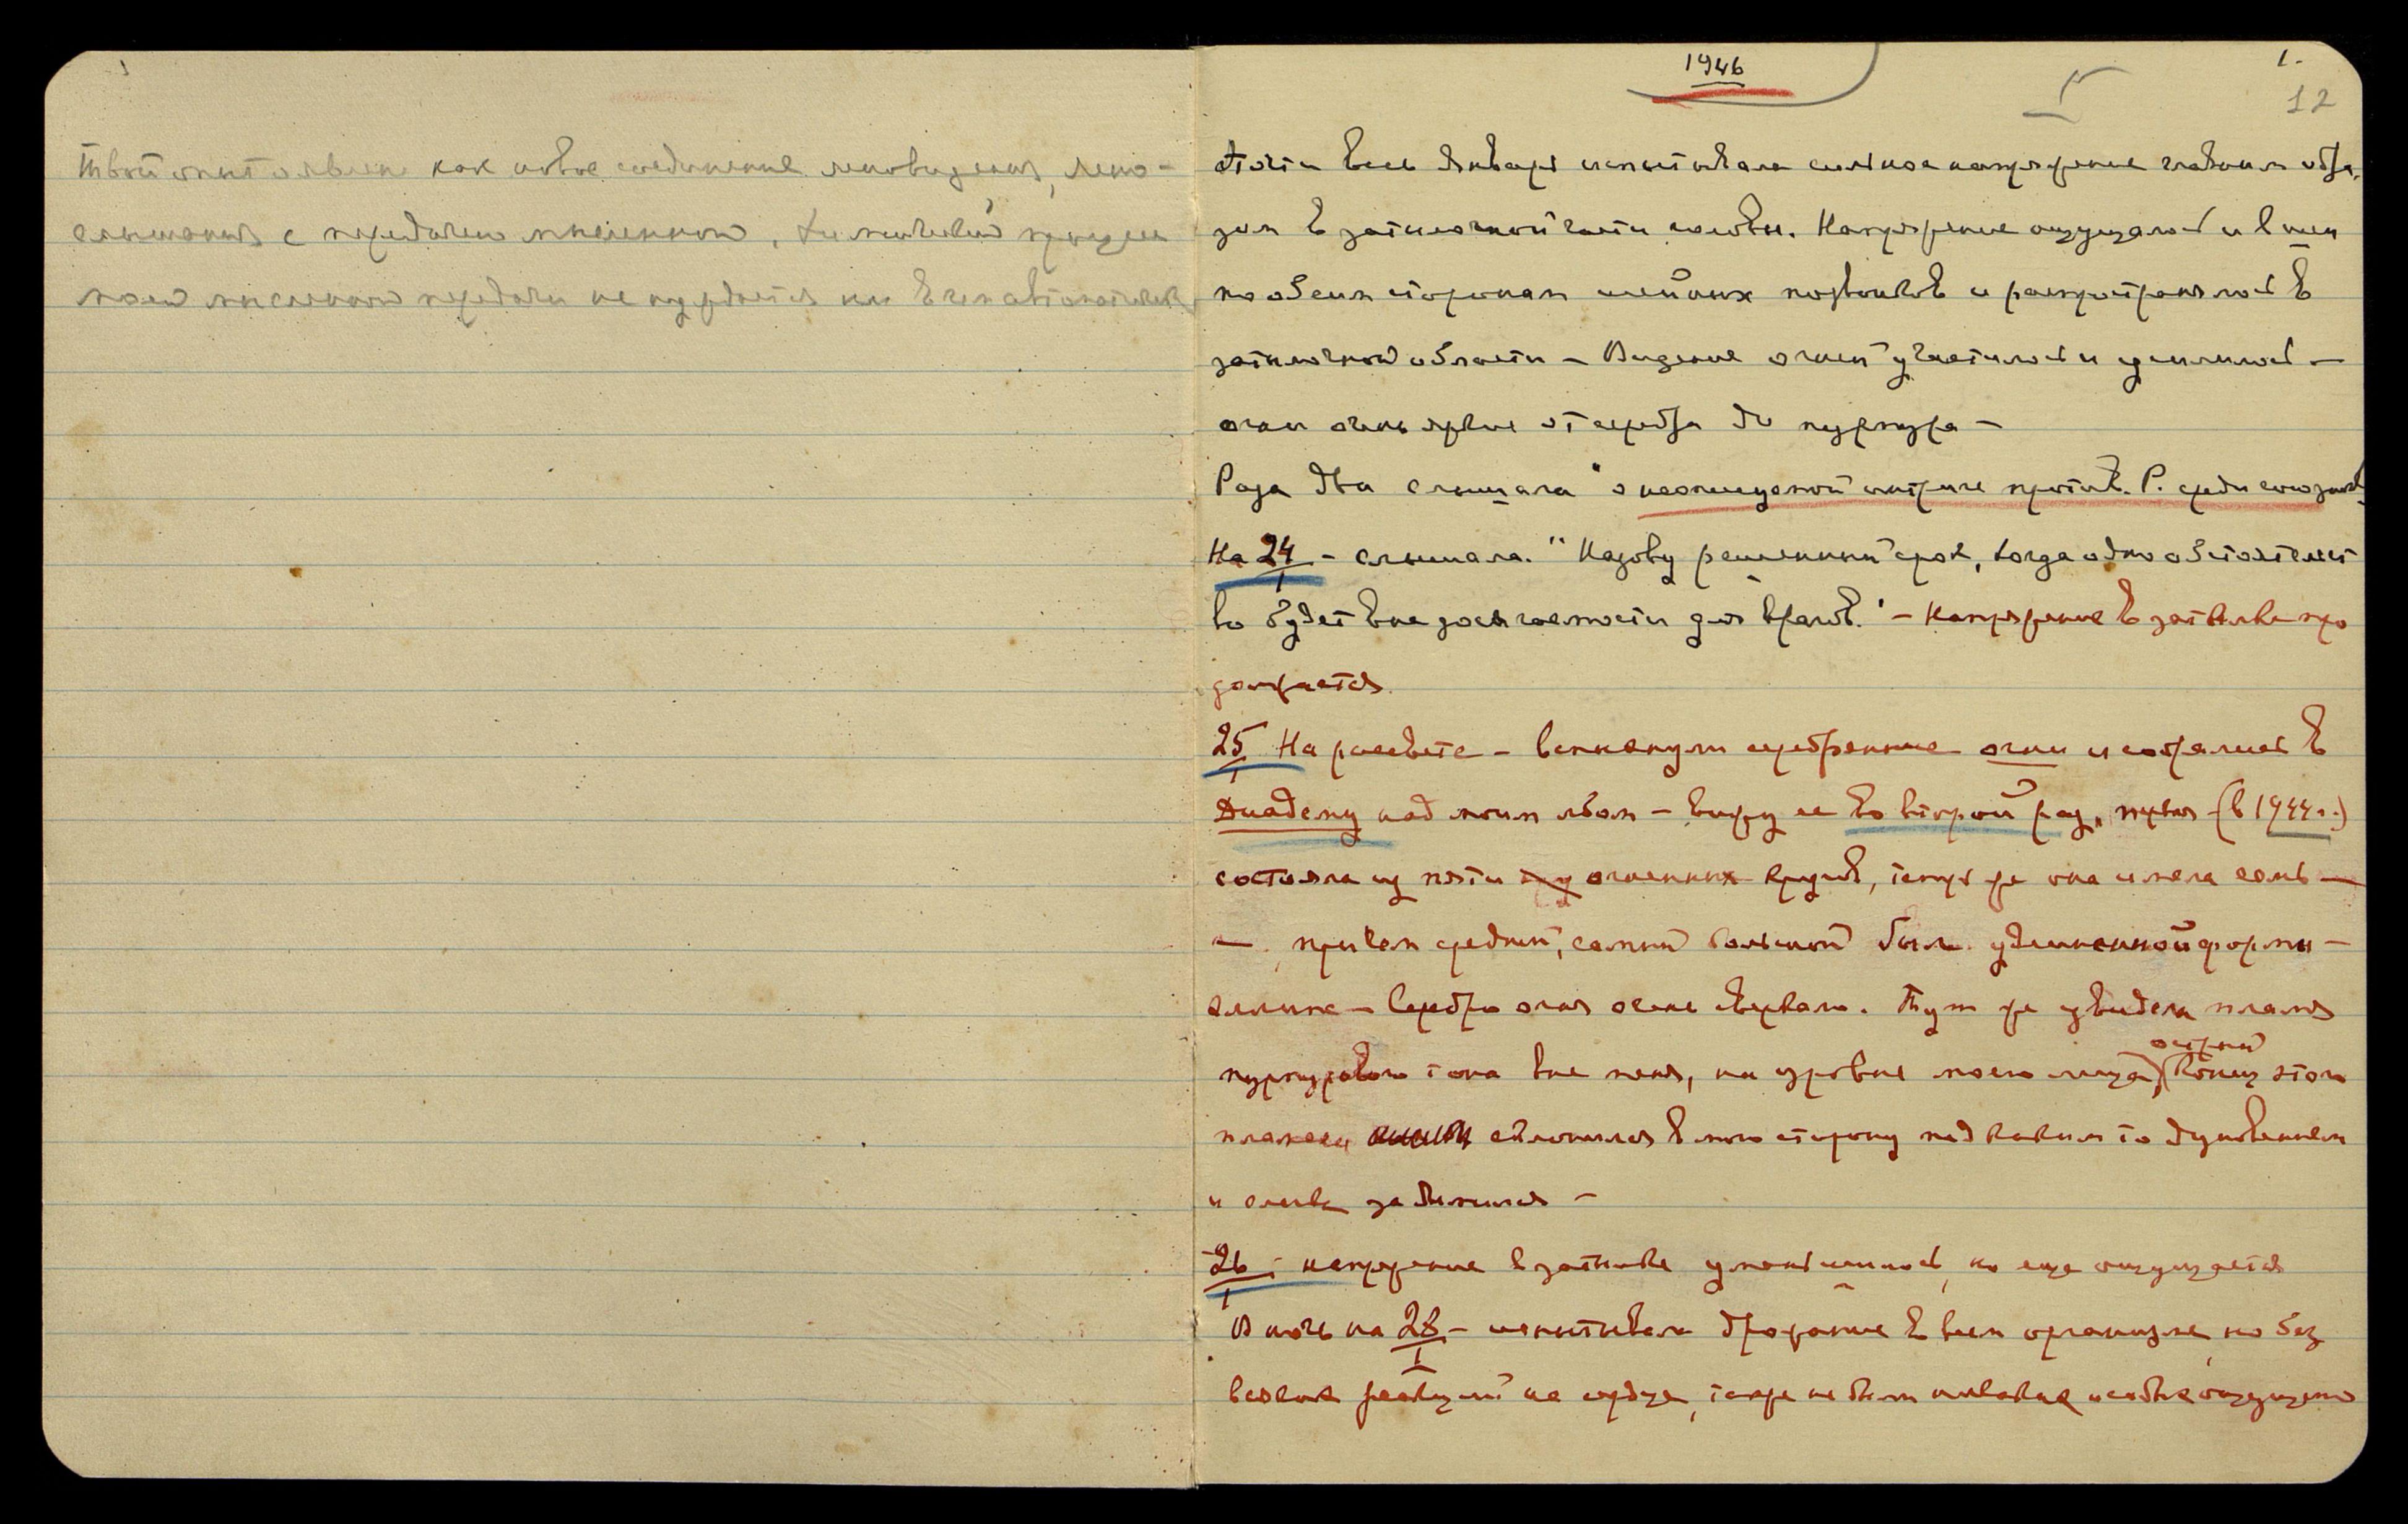 Твой опыт явлен как новое соединение ясновидения, ясно-
слышания с передачею мысленною, химический процесс
моей мысленной передачи не нуждается ни в чем
1946
1.
12
Почти весь Январь испытывала сильное напряжение главным обра-
зом в затылочной части головы. Напряжение ощущалось и в шее
по обеим сторонам шейных позвонков и распространялось в
затылочной области – Видение огней участилось и усилилось –
огни очень яркие от серебра до пурпура –
Раза два слышала " о неописуемой интриге против. Р. среди союзников
На 24/I – слышала. "Назову решенный срок, когда одно обстоятельст
во будет вне досягаемости для врагов." – Напряжение в затылке про
должается.
25/I На рассвете – вспыхнули серебряные огни и собрались в
Диадему над моим лбом – вижу ее во второй раз, первая (в 1944 г.)
состояла из пяти огненных кругов, теперь же она имела семь –
– причем средний, самый большой был удлиненной формы –
эллипс – Серебро огня очень сверкало. Тут же увидела пламя
пурпурового тона вне меня, на уровне моего лица, острый
конец этого
пламени склонился в мою сторону под каким то дуновением
и слегка задымился –
26/I – напряжение в затылке уменьшилось, но еще ощущается
В ночь на 28/I – испытывала дрожание в всем организме, но без
всякой реакции на сердце, также не было никаких особых ощущений